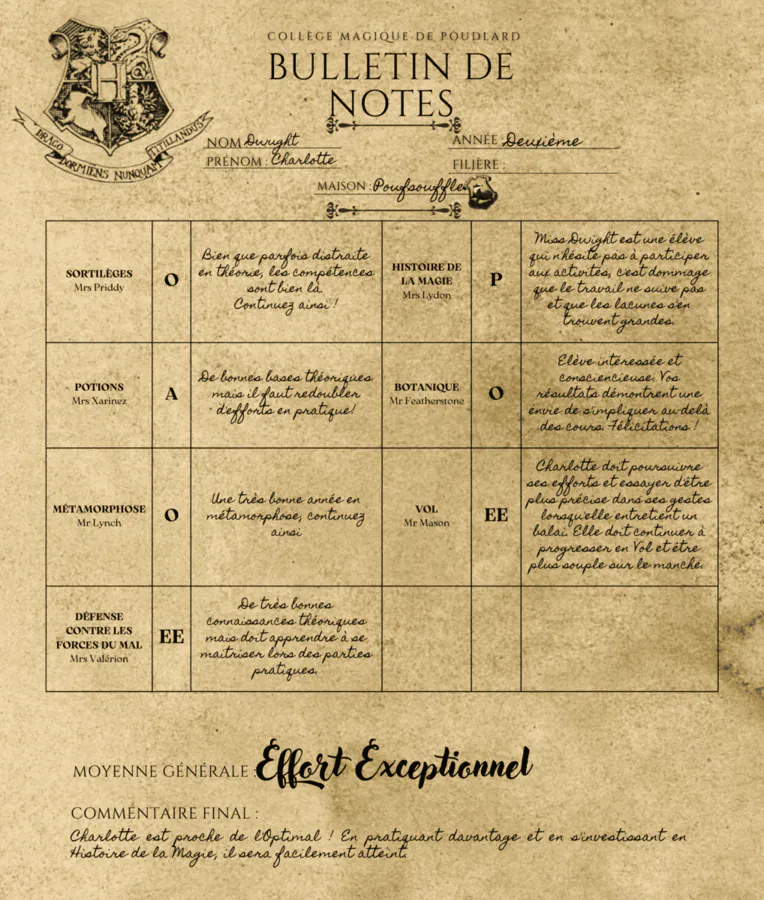 COLLÈGE MAGIQUE DE POUDLARD
BULLETIN DE
NOTES
H
DRACO
DORMIENS NUNQUAM
TITILLANDUS
NOM Dwight
ANNÉE : Deuxième
PRÉNOM : Charlotte
FILIÈRE :
MAISON : Poufsouffle
SORTILÈGES
Mrs Priddy
O
Bien que parfois distraite
en théorie, les compétences
sont bien là.
Continuez ainsi !
HISTOIRE DE
LA MAGIE
Mrs Lydon
P
Miss Dwight est une élève
qui n'hésite pas à participer
aux activités, c'est dommage
que le travail ne suive pas
et que les lacunes s'en
trouvent grandes.
POTIONS
Mrs Xarinez
A
De bonnes bases théoriques
mais il faut redoubler
d'efforts en pratique!
BOTANIQUE
Mr Featherstone
O
Elève intéressée et
consciencieuse. Vos
résultats démontrent une
envie de s'impliquer au-delà
des cours. Félicitations !
MÉTAMORPHOSE
Mr Lynch
O
Une très bonne année en
métamorphose, continuez
ainsi
VOL
Mr Mason
EE
Charlotte doit poursuivre
ses efforts et essayer d'être
plus précise dans ses gestes
lorsqu'elle entretient un
balai. Elle doit continuer à
progresser en Vol et être
plus souple sur le manche.
DÉFENSE
CONTRE LES
FORCES DU MAL
Mrs Valérion
EE
De très bonnes
connaissances théoriques
mais doit apprendre à se
maitriser lors des parties
pratiques.
MOYENNE GÉNÉRALE : Effort Exceptionnel
COMMENTAIRE FINAL :
Charlotte est proche de l'Optimal ! En pratiquant davantage et en s'investissant en
Histoire de la Magie, il sera facilement atteint.